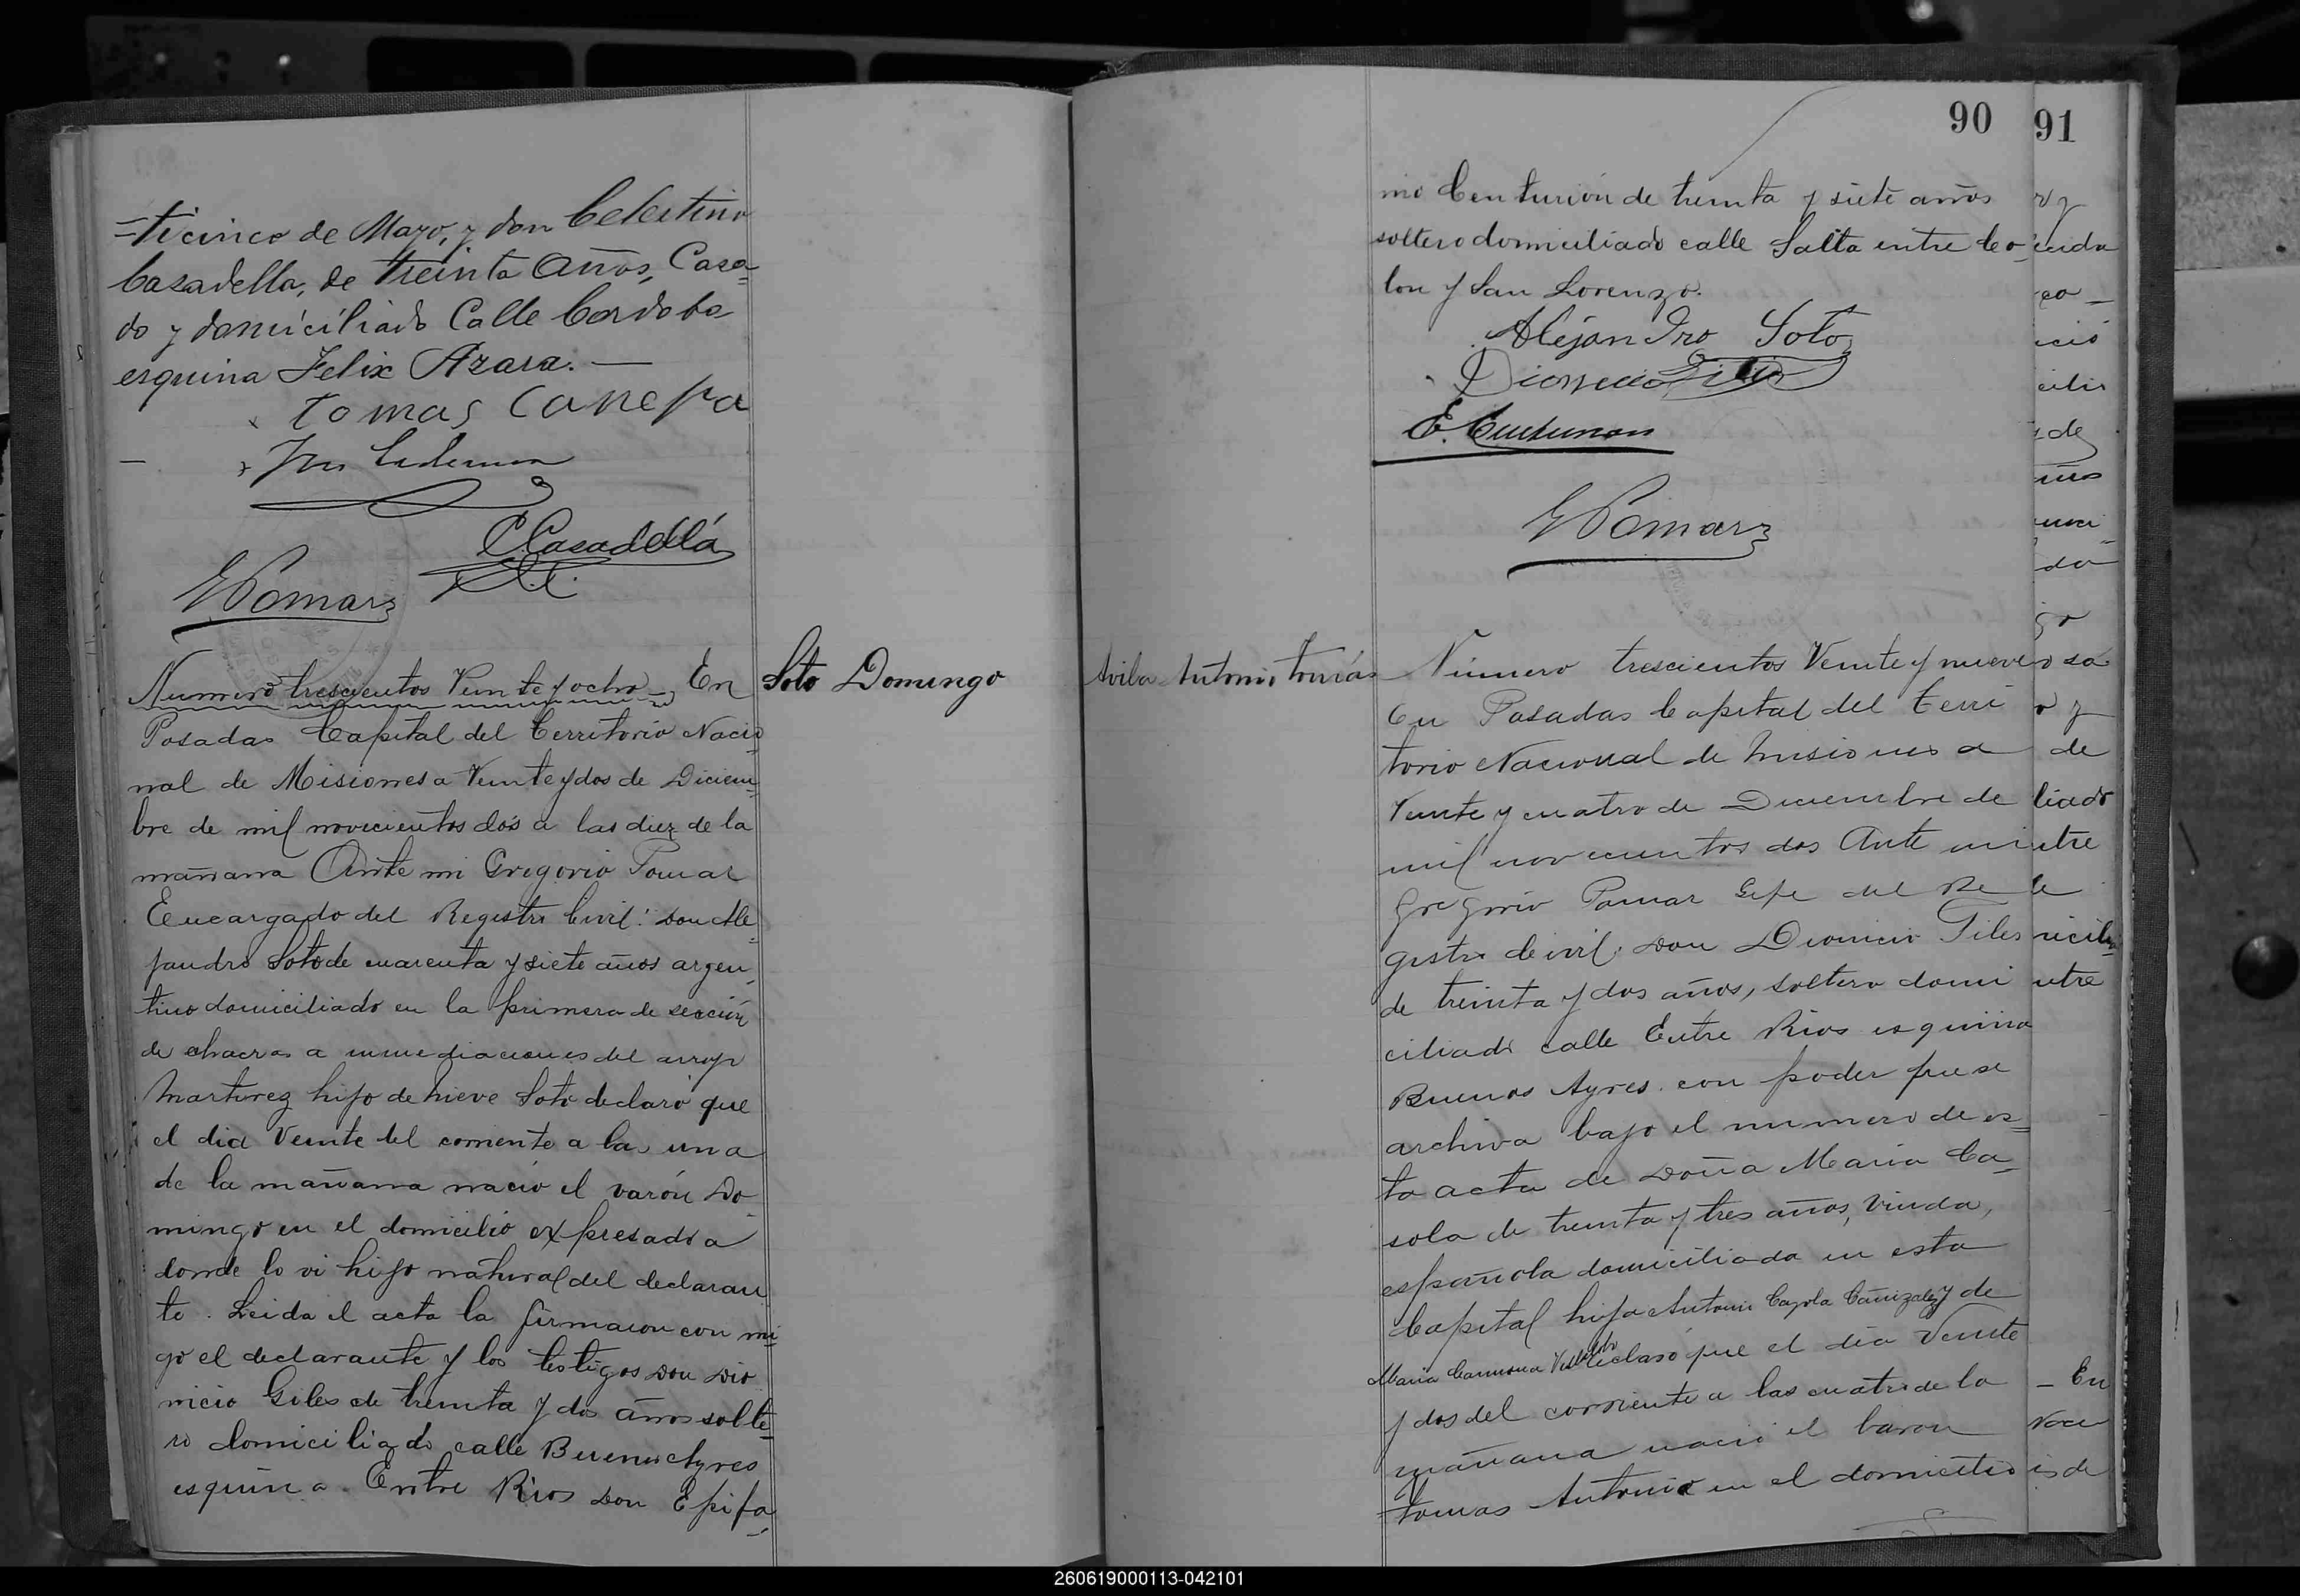 =ticinco de Mayo, y don Celestino
Casadella, de treinta años, Casa=
do y domiciliado Calle Cordoba
esquina Felix Azara. —
Tomas Canepa
C Casadellá
GPomar
Numero trescientos Veinte y ocho — En
Soto Domingo
Posadas Capital del Territorio Nacio
nal de Misiones a Veinte y dos de Diciem
bre de mil novecientos dós a las diez de la
mañana Ante mi Gregorio Pomar
Encargado del Registro Civil: Don Ale
jandro Soto de cuarenta y siete años argen
tino domiciliado en la primera de sección
de chacras a inmediaciones del arroyo
Martirez hijo de Nieve Soto declaró que
el dia Veinte del corriente a las una
de la mañana nació el varón Do
mingo en el domicilio expresado a
donde lo vi hijo natural del declaran
te. Leida el acta la firmaron con mi
go el declarante y los testigos Don Dio
nicio Giles de treinta y dos años solte
ro domiciliado calle Buenos Ayres
esquina Entre Rios Don Epifa
90
nio Centurión de treinta y siete años
soltero domiciliado calle Salta entre Co
lon y San Lorenzo.
Alejandro Soto
E. Centurion
GPomar
Avila Antonio Tomás
Número trescientos Veinte y nueve
En Posadas Capital del Terri
torio Nacional de Misiones a
Veinte y cuatro de Diciembre de
mil novecientos dos Ante mi
Gregorio Pomar Gefe del Re
gistro Civil: Don Dionicio Giles
de treinta y dos años, soltero domi
ciliado calle Entre Rios esquina
Buenos Ayres con poder que se
archiva bajo el numero de es=
ta acta de Doña Maria Ca=
sola de treinta y tres años, viuda,
española domiciliada en esta
Capital hija Antonio Cazola Cañizalez y de
Maria Carmona declaró que el dia Veinte
y dos del corriente a las cuatro de la
mañana nació el baron
Tomas Antonio en el domicilio
91
de
liado
— En
is de
260619000113-042101